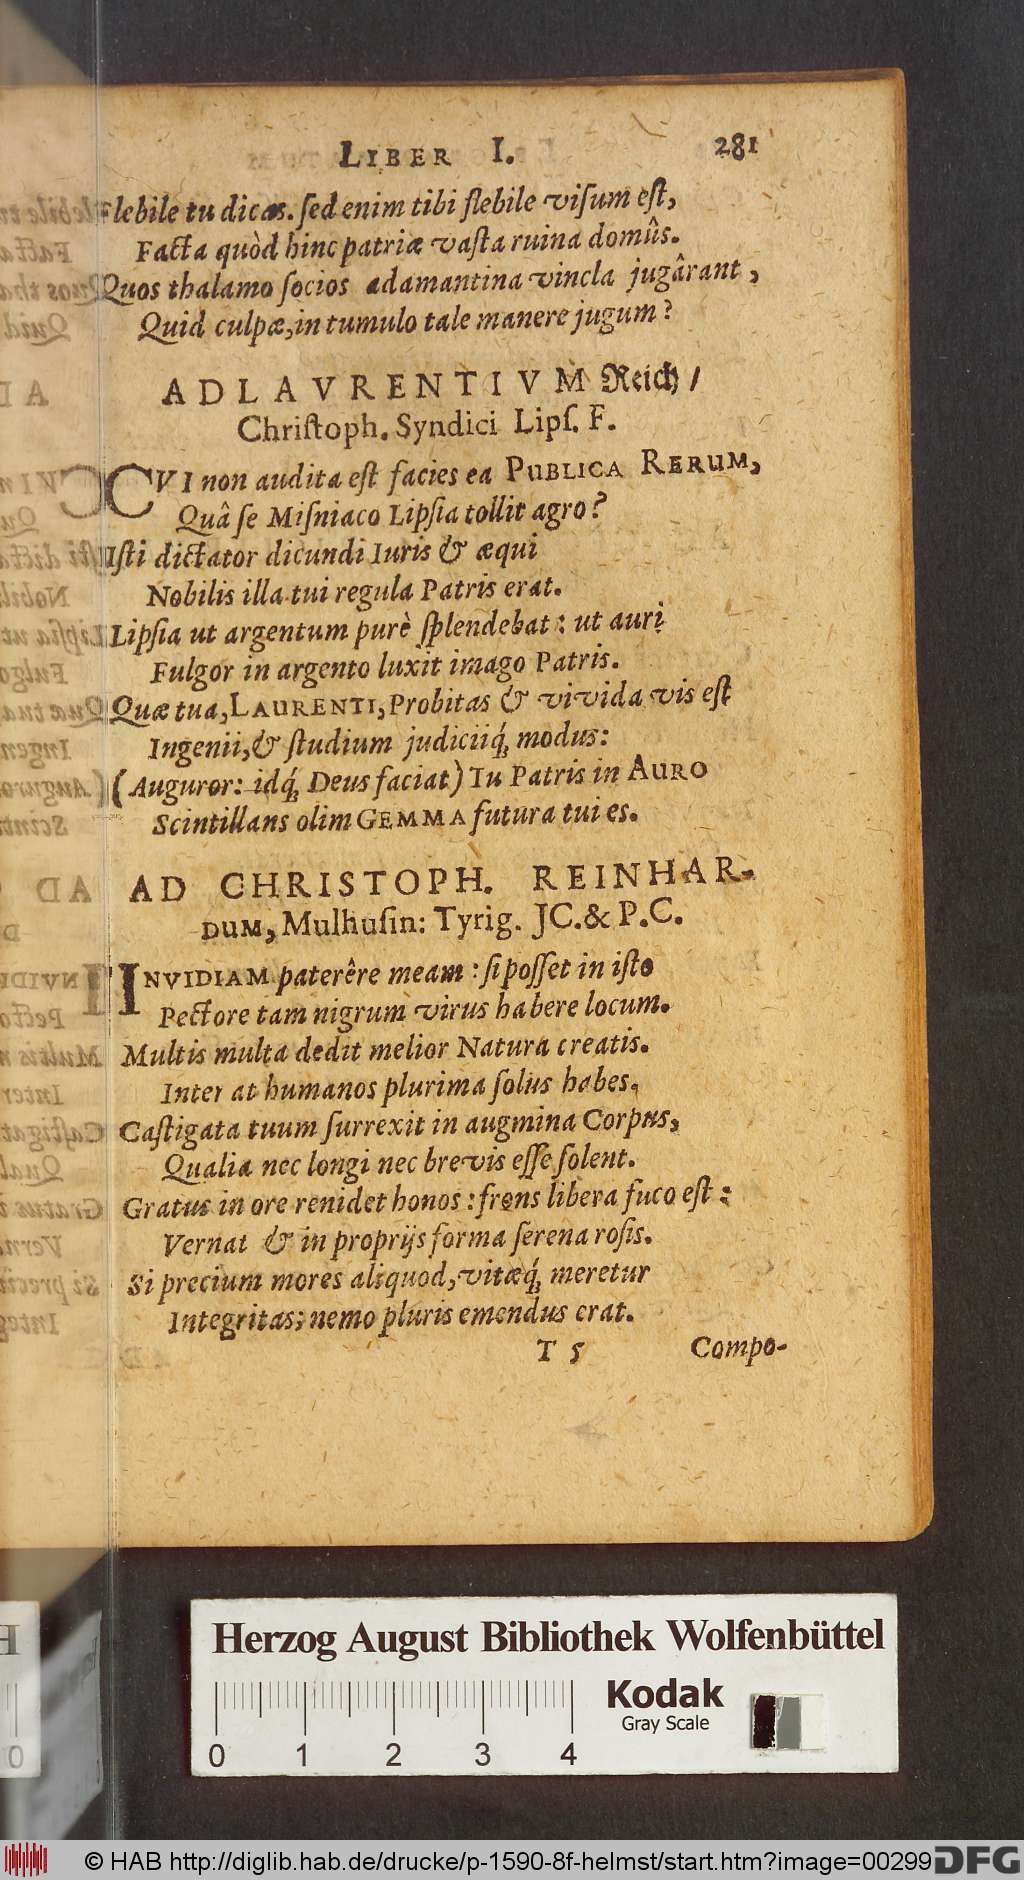 LIBER I. 281
Flebile tu dicas. ſed enim tibi flebile viſum eſt,
Facta quòd hinc patriæ vaſta ruina domûs.
Quos thalamo ſocios adamantina vincla jugârant,
Quid culpæ, in tumulo tale manere jugum?
AD LAVRENTIVM Reich/
Chriſtoph. Syndici Lipſ. F.
CVI non audita eſt facies ea PUBLICA RERUM,
Quâ ſe Miſniaco Lipſia tollit agro?
Iſti dictator dicundi Iuris & æqui
Nobilis illa tui regula Patris erat.
Lipſia ut argentum purè ſplendebat: ut auri
Fulgor in argento luxit imago Patris.
Quæ tua, LAURENTI, Probitas & vivida vis eſt
Ingenii, & ſtudium judiciiq́; modus:
(Auguror: idq́; Deus faciat) Tu Patris in AURO
Scintillans olim GEMMA futura tui es.
AD CHRISTOPH. REINHAR-
DUM, Mulhuſin: Tyrig. JC. & P.C.
INVIDIAM paterêre meam: ſi poſſet in iſto
Pectore tam nigrum virus habere locum.
Multis multa dedit melior Natura creatis.
Inter at humanos plurima ſolus habes.
Caſtigata tuum ſurrexit in augmina Corpus,
Qualia nec longi nec brevis eſſe ſolent.
Gratus in ore renidet honos: frons libera fuco eſt:
Vernat & in proprijs forma ſerena roſis.
Si precium mores aliquod, vitæq́; meretur
Integritas; nemo pluris emendus erat.
T 5 Compo-
Herzog August Bibliothek Wolfenbüttel
Kodak
Gray Scale
0 1 2 3 4
© HAB http://diglib.hab.de/drucke/p-1590-8f-helmst/start.htm?image=00299
DFG